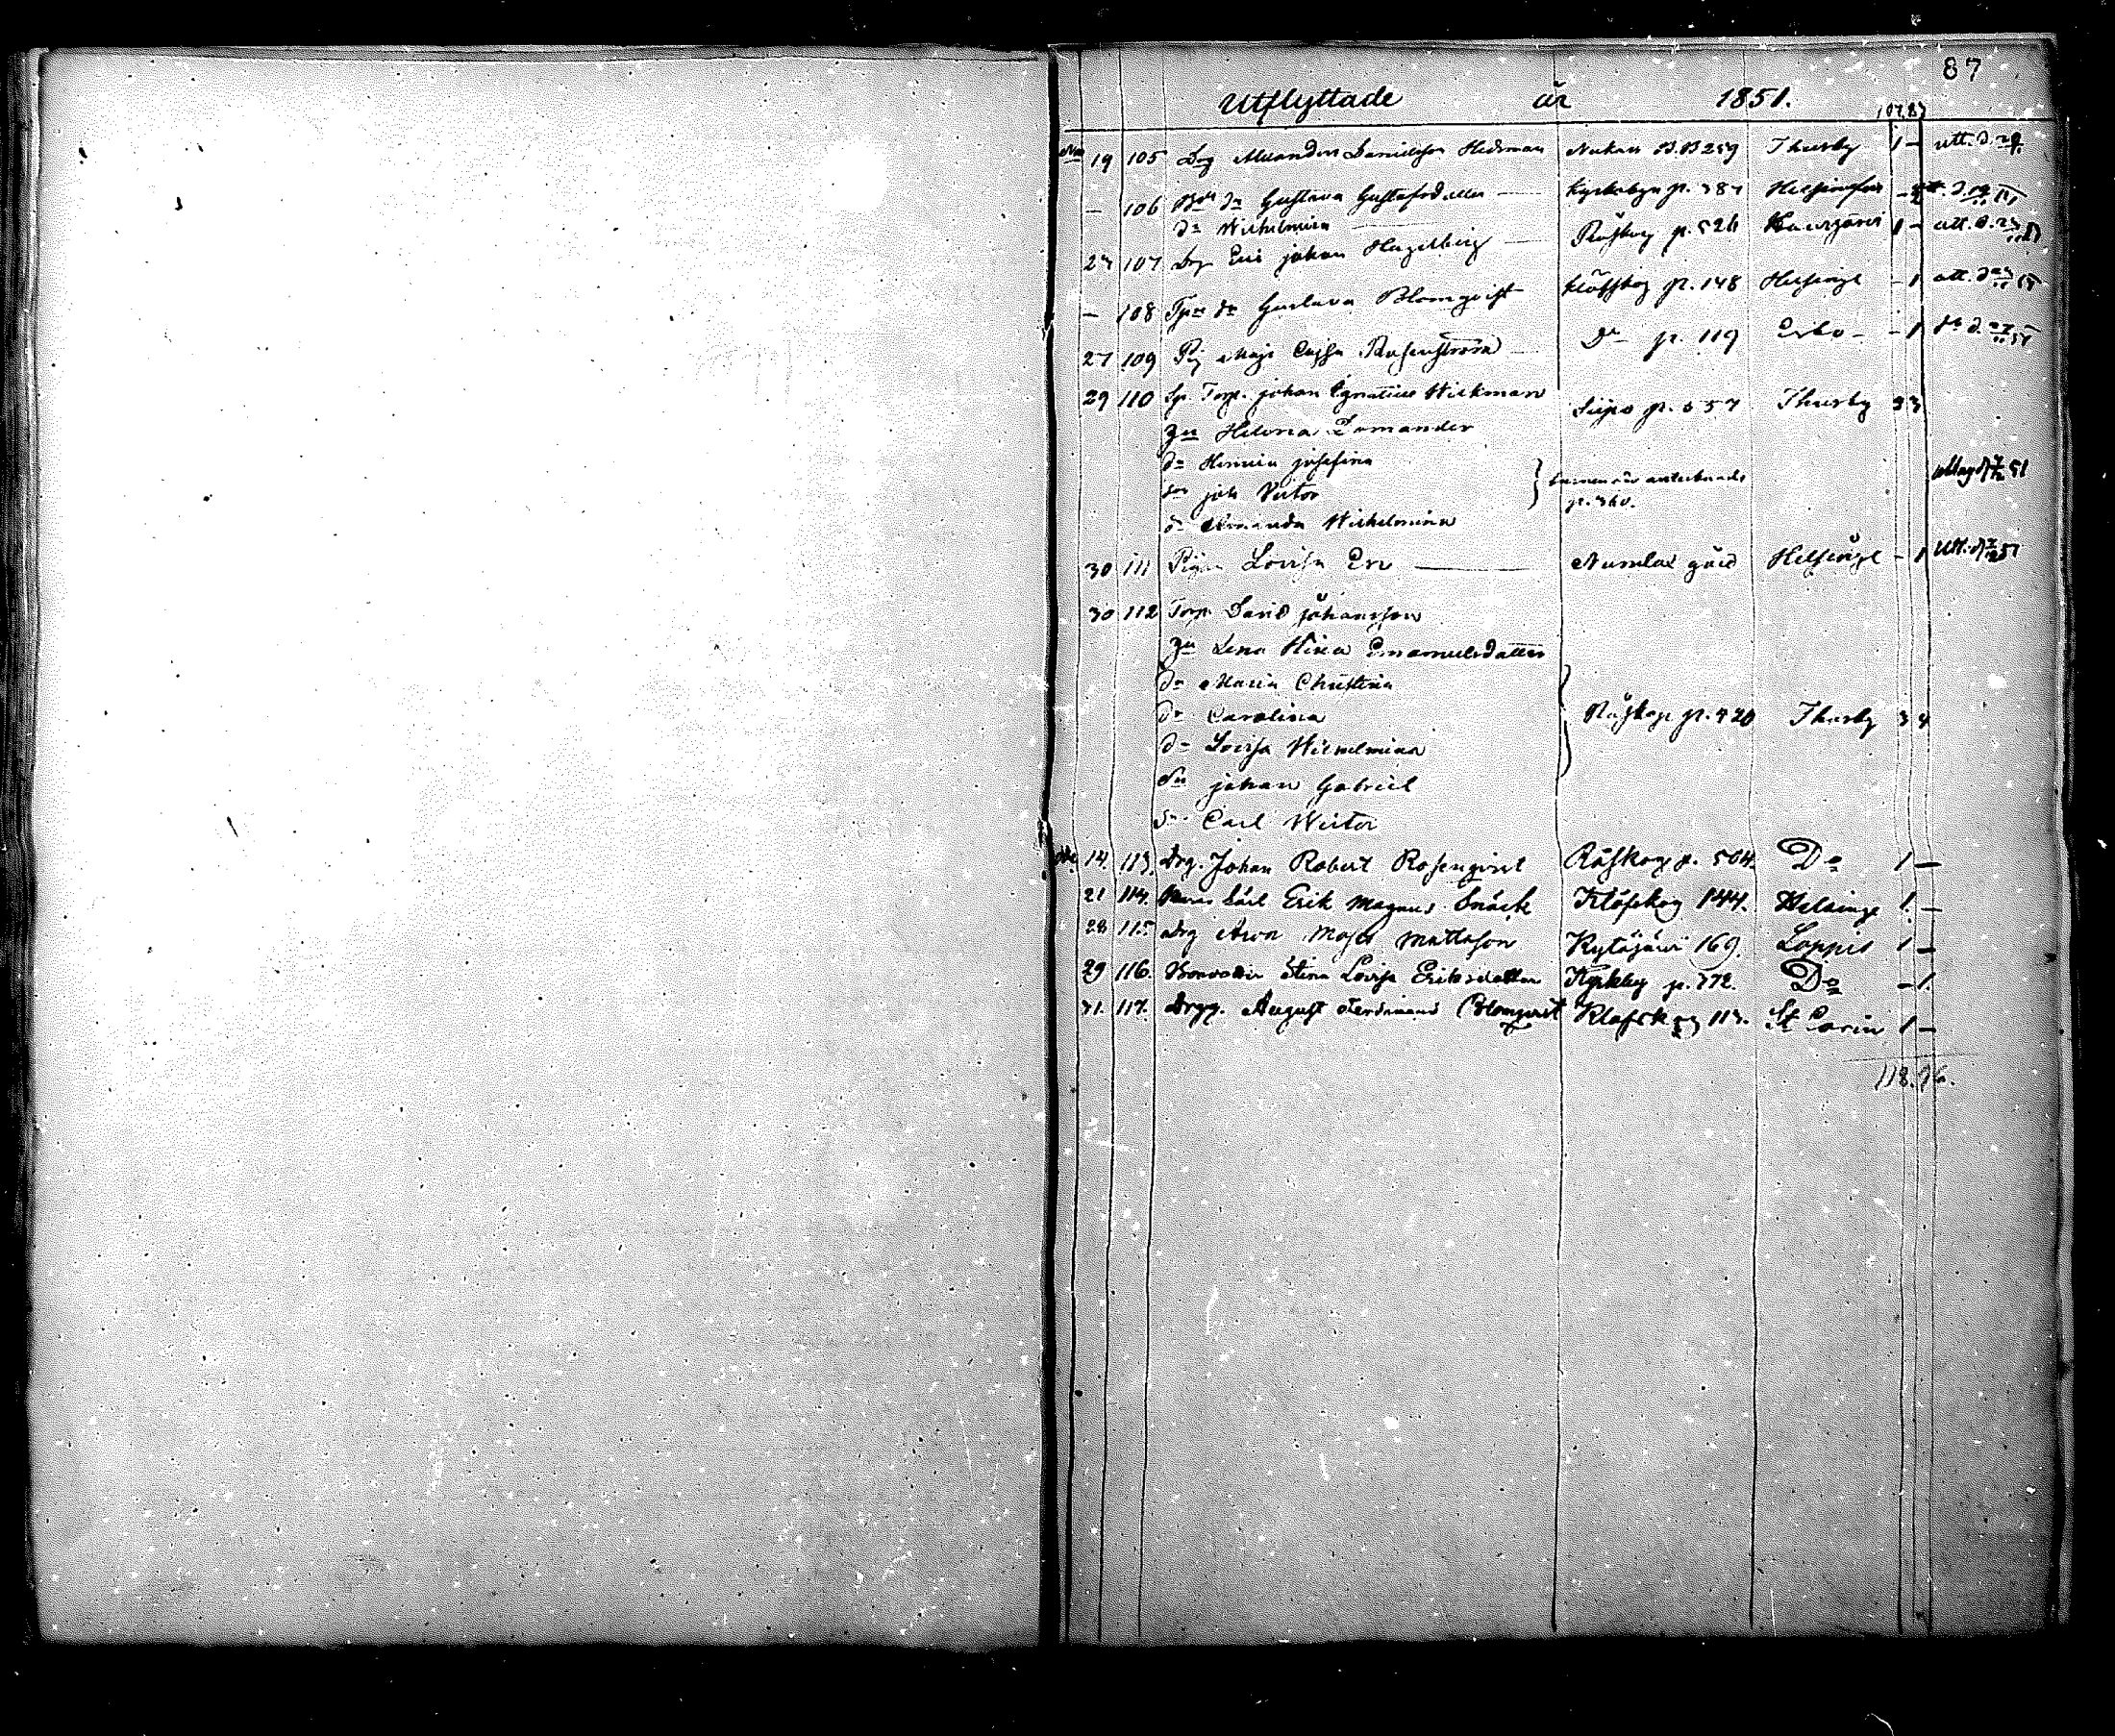 87
Utflyttade år 1851.
107.83
Nov 19 105 Drg Alexander Danielsson Hedman Nukari B.B 259 Thusby 1 - utt. d. 29
- 106 Gustava Gustafsdotter Kyrkobyn p. 387 Helsingfors - 2 utt. d. 19
dr Wilhelmina
23 107 Drg Eric Johan Hagelberg Röfskog p. 526 1 - utt. d. 23
- 108 dr Gustava Blomqvist Klöfskog p. 148 Helsinge - 1 utt. d. 23
27 109 Pig Maja Cajsa Rosenström Do p. 119 Esbo - 1
29 110 Sp. Torp. Johan Ignatius Wickman Siipo p. 557 Thusby 3 3
Hu Helena Lomander
dr Josefina
sn Joh Victor
p. 360.
dr Amanda Wilhelmina
30 111 Pigan Lovisa Numlax gård Helsinge - 1 utt. d. 51
30 112 Torp. David Johansson
Hu Lena Stina Emanuelsdotter
dr Maria Christina
dr Carolina Röfskog p. 420 Thusby 3 4
dr Lovisa Wilhelmina
sn Johan Gabriel
sn Carl Victor
Dec. 14. 113. Drg. Johan Robert Rosenqvist Röfskog p. 504. Do 1 -
21 114. Carl Erik Magnus Snäck Klöfskog 144. Helsinge 1. -
28 115 Drg Aron Moses Mattsson Kytäjärvi 169. Loppis 1 -
29 116. Stina Lovisa Eriksdotter Kyrkby p. 372. Do - 1.
31. 117. Drgg. August Ferdinand Blomqvist Klöfskog 113. St Carin 1 -
118.96.